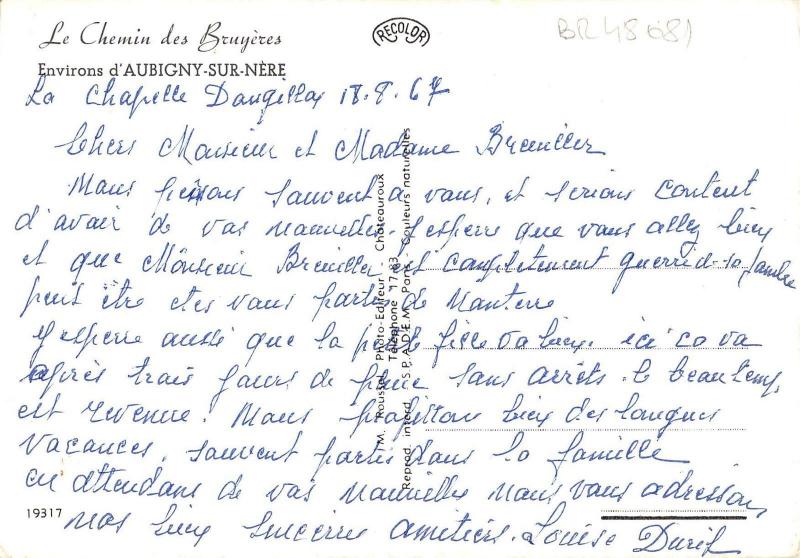 Le Chemin des Bruyères
Environs d'AUBIGNY-SUR-NÈRE
RECOLOR
BR48681
La Chapelle Dangillon 18.8.67
Chers Monsieur et Madame Breuiller
Nous pensons souvent a vous, et serions content
d'avoir de vos nouvelles. J'esperre que vous allez bien
et que Monsieur Breuiller est completement guerrid sa jambe
peut être etes vous partis de Nanterre
J'esperre aussi que la petite fille va bien, ici ca va
après trois jours de pluie sans arrêts. le beautemps
est revenue. Nous profittons bien des longues
vacances, souvent partis dans la famille
en attendans de vos nouvelles nous vous adressons
nos bien sincerres amitiers. Louise Durif
M. Rousset, Photo-Editeur - Châteauroux
Téléphone 17-83
Reprod. interd. S.P.A.D.E.M. Paris - Couleurs naturelles
19317